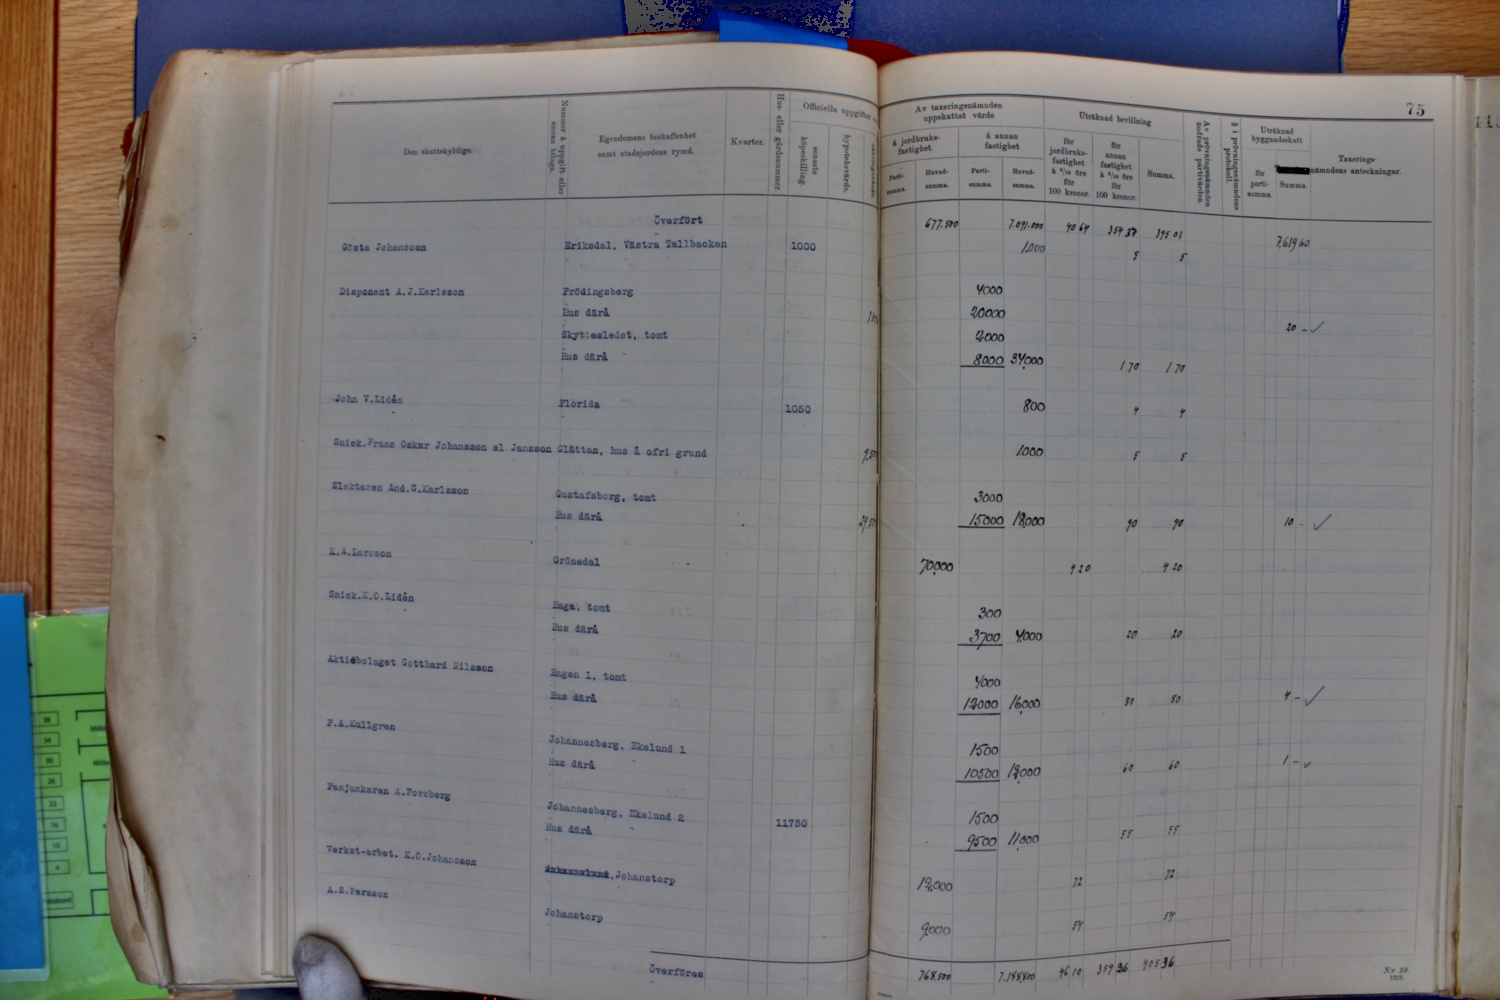 75
Den skattskyldige.
Nummer å uppgift eller annan bilaga.
Egendomens beskaffenhet samt stadsjordens rymd.
Kvarter.
Hus- eller gårdsnummer.
Officiella uppgifter
senaste köpeskilling.
hypoteksvärde.
Av taxeringsnämnden uppskattat värde
å jordbruksfastighet.
å annan fastighet
Partisumma.
Huvudsumma.
Partisumma.
Huvudsumma.
Uträknad bevillning
för jordbruksfastighet à 6/10 öre för 100 kronor.
för annan fastighet à 5/10 öre för 100 kronor.
Summa.
Av prövningsnämnden ändrade partivärden.
§ i prövningsnämndens protokoll.
Uträknad byggnadsskatt
för partisumma.
Summa
Taxeringsnämndens anteckningar.
Överfört 677.500 7.091.000 40 64 7,619 60
Gösta Johansson Eriksdal, Västra Tallbacken 1000 1,000 5 5
Disponent A.J.Karlsson Frödingsberg 4000
Hus därå 20000 20 -
Skyttesledet, tomt 2000
Hus därå 8000 34,000 1 70 1 70
John V.Lidén Florida 1050 800 4 4
Snick.Frans Oskar Johansson el Jansson Glättan, hus å ofri grund 1000 5 5
Slaktaren And.G.Karlsson Gustafsborg, tomt 3000
Hus därå 15000 18,000 90 90 10 -
K.A.Larsson Grönedal 70,000 4 20 4 20
Snick.K.O.Lidén Haga, tomt 300
Hus därå 3700 4,000 20 20
Aktiebolaget Gotthard Nilsson Hagen 1, tomt 4000
Hus därå 12000 16,000 80 80 4 -
F.A.Kullgren Johannesberg, Ekelund 1 1500
Hus därå 10500 12,000 60 60 1 -
Fanjunkaren A.Forsberg Johannesberg, Ekelund 2 11750 1500
Hus därå 9500 11,000 55 55
Verkst-arbet. K.G.Johansson Johanstorp 12,000 72 72
A.S.Persson Johanstorp 9,000 54 54
Överföres 768.500 46 10 359 36 405 36
N:r 10.
1919.